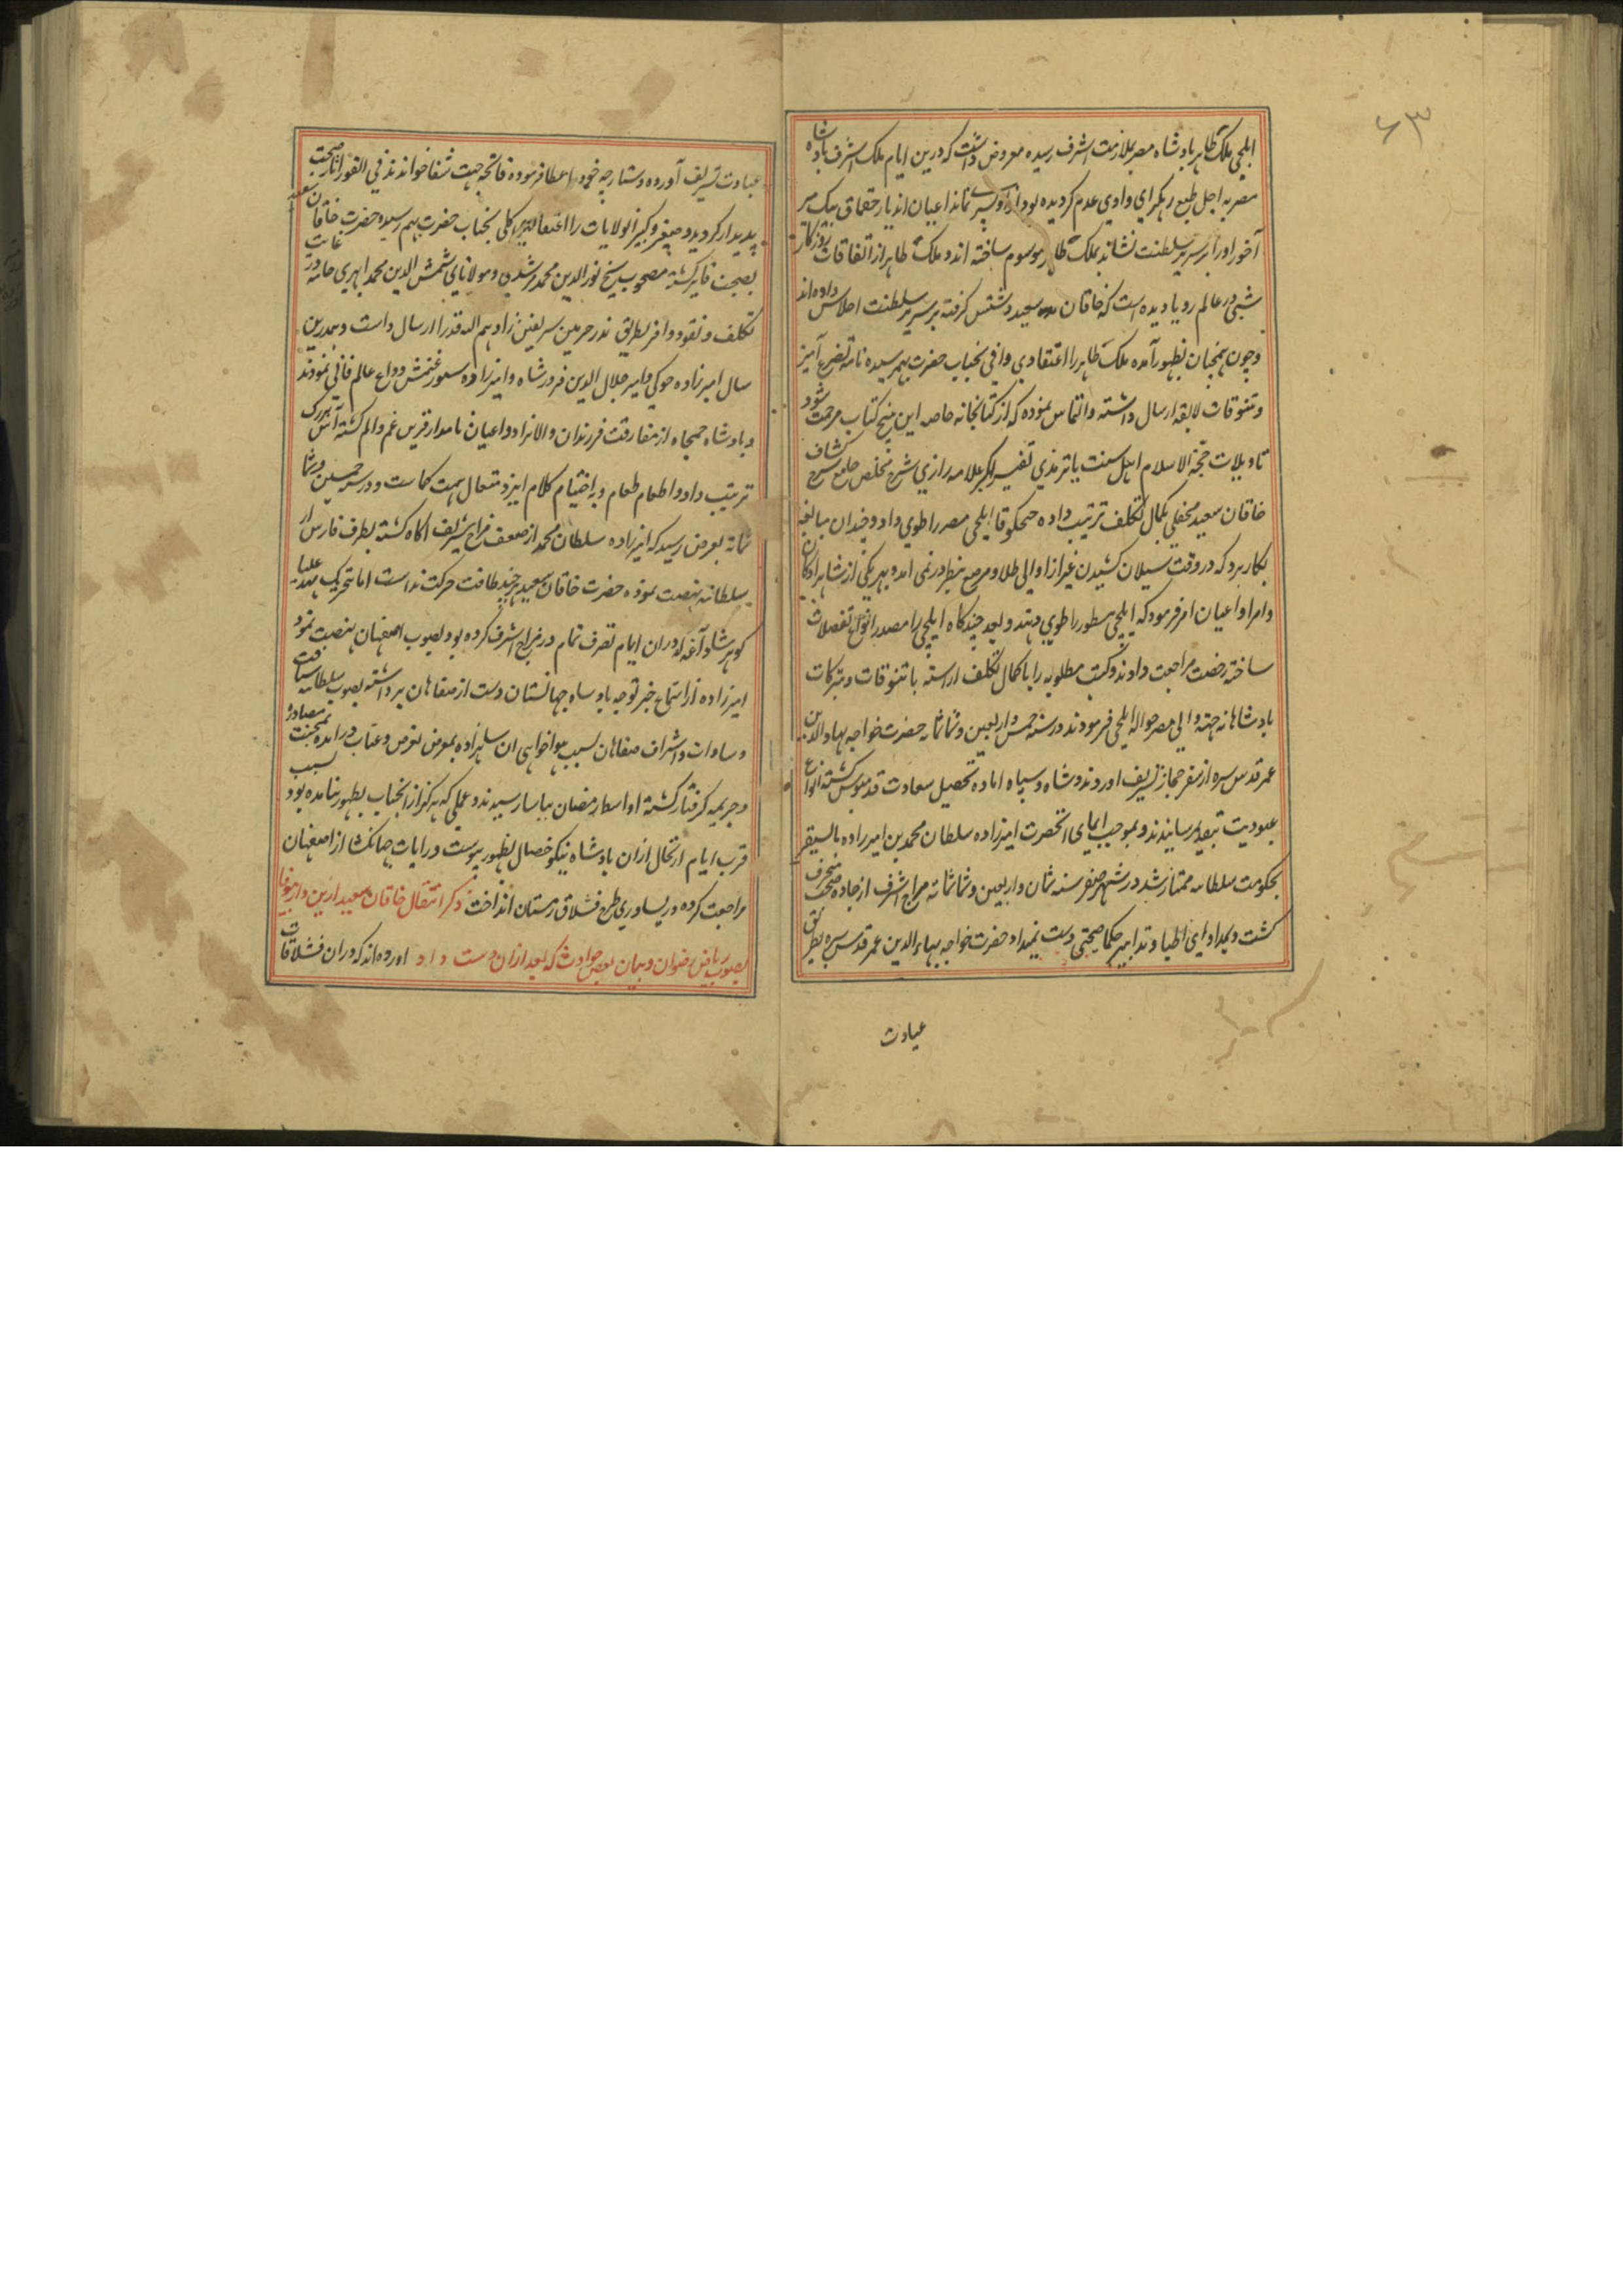 ۶۳
ایلچی ملک ظاهر بادشاه مصر بملازمت اشرف رسیده معروض داشت که درین ایام ملک اشرف بادشاه
مصر به اجل طبیعی رهکرای وادی عدم کردیده بود از او پسری نماند اعیان اندیار حقماق بیک میر
آخور اورا بر سریر سلطنت نشاند بملک ظاهر موسوم ساخته اند و ملک ظاهر از اتفاقات روزکار
شبی در عالم رویا دیده است که خاقان سعید دستش کرفته بر سریر سلطنت اجلاس داده اند
و چون همچنان بظهور آمده ملک ظاهر را اعتقادی وافی بجناب حضرت بهم رسیده نامه تضرع آمیز
و تنوقات لایقه ارسال داشته و التماس نموده که از کتابخانه خاصه این پنج کتاب مرحمت شود
تاویلات حجة الاسلام اهل سنت یا ترمذی تفسیر کبر علامه رازی شرح تلخیص جامع شرح کشاف
خاقان سعید محفلی بکمال تکلف ترتیب داده جحکوقا ایلچی مصر را طوی داد و چندان مبالغه
بکار برد که در وقت سیلان کشیدن غیر از اوالی طلا و مرصع بنظر در نمی امد و بهر یکی از شاهزادکان
و امرا و اعیان امر فرمود که ایلچی مسطور را طوی دهند و بعد چندکاه ایلچی را مصدر انواع تفضلات
ساخته رخصت مراجعت دادند و کتب مطلوبه را با کمال تکلف اراسته با تنوقات و تبرکات
بادشاهانه جهته والی مصر حواله ایلچی فرمودند در سنه خمس و اربعین و ثمانمائه حضرت خواجه بهاء الدین
عمر قدس سره از سفر حجاز تشریف اوردند و شاه و سپاه اماده تحصیل سعادت قدمبوس کشته انواع
عبودیت بتقدیم رسانیدند و بموجب ایمای انحضرت امیرزاده سلطان محمد بن امیرزاده بایسنقر
بحکومت سلطانیه ممتاز شد در شهر صفر سنه ثمان و اربعین و ثمانمائه مزاج اشرف از جاده صحت منحرف
کشت و بمداوای اطبا و تدابیر حکما صحتی دست نمیداد حضرت خواجه بهاء الدین عمر قدس سره بطریق
عیادت
عیادت تشریف آورده دستارچه خود را عطا فرموده فاتحه جهت شفا خواندند فی الفور اثار صحت
پدیدار کردید و صغیر و کبیر الولایات را اعتقاد کلی بجناب حضرت بهم رسیده حضرت خاقان سعید
بصحت فایز کشته مصحوب شیخ نور الدین محمد مرشدی و مولانای شمس الدین محمد ابهری جامه در غایت
تکلف و نقود وافر بطریق نذر حرمین شریفین زادهم الله قدرا ارسال داشت و بهمدرین
سال امیرزاده جوکی و امیر جلال الدین فیروز شاه و امیرزاده سیورغتمش وداع عالم فانی نمودند
و بادشاه جمجاه از مفارقت فرزندان والانژاد و اعیان نامدار قرین غم و الم کشته آش بزرک
ترتیب داد و اطعام طعام و باختیام کلام ایزد متعال همت کماشت و در سنه خمسین و ثما
نمائه بعرض رسید که امیرزاده سلطان محمد از ضعف مزاج شریف اکاه کشته بطرف فارس از
سلطانیه نهضت نموده حضرت خاقان سعید هرچند طاقت حرکت نداشت اما بتحریک مهد علیا
کوهرشاد آغه که دران ایام تصرف تمام در مزاج اشرف کرده بود بصوب اصفهان نهضت نمود
امیرزاده از استماع خبر توجه بادشاه جهانستان دست از صفاهان برداشته بصوب سلطانیه شتافت
و سادات و اشراف صفاهان بسبب هواخواهی ان شاهزاده بمعرض تعرض و عتاب درامده بمحنت مصادره
و جریمه کرفتار کشته اواسط رمضان بیاسا رسیدند و عملی که هرکز از انجناب بظهور نیامده بود بسبب
قرب ایام ارتحال ازان بادشاه نیکو خصال بظهور پیوست و رایات جهانکشا از اصفهان
مراجعت کرده در پساوری طرح قشلاق زمستان انداخت ذکر انتقال خاقان سعید ازین دار بیوفا
بصوب ریاض رضوان و بیان بعض حوادث که بعد ازان دست داد اورده اند که دران قشلاقات